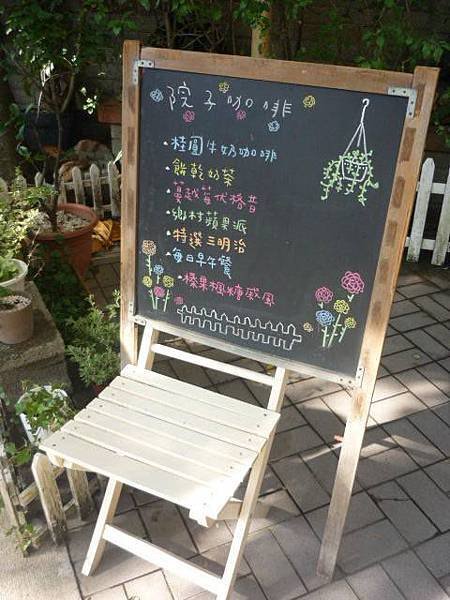 院子咖啡
・桂圓牛奶咖啡
・餅乾奶茶
・蔓越莓優格昔
・鄉村蘋果派
・特選三明治
・每日早午餐
・榛果楓糖戚風